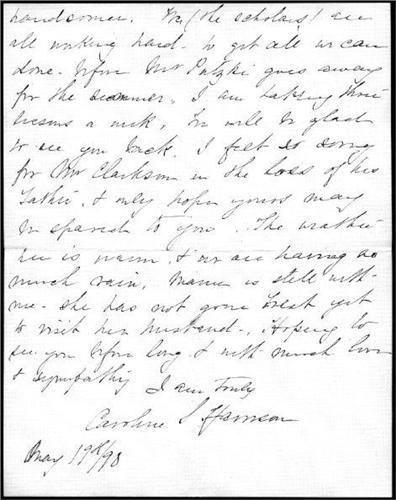 handsomer. We (the scholars) are
all working hard - to get all we can
done - before Mr Putzki goes away
for the summer, I am taking three
lessons a week, You will be glad
to see you back. I felt so sorry
for Mr Clarkson in the loss of his
Father, & only hope yours may
be spared to you. The weather
here is warm, & we are having so
much rain, Mamie is still with
me - she has not gone West yet
to visit her husband -. Hoping to
see you before long & with much love
& sympathy I am Truly
Caroline S Harrison
May 19th/90